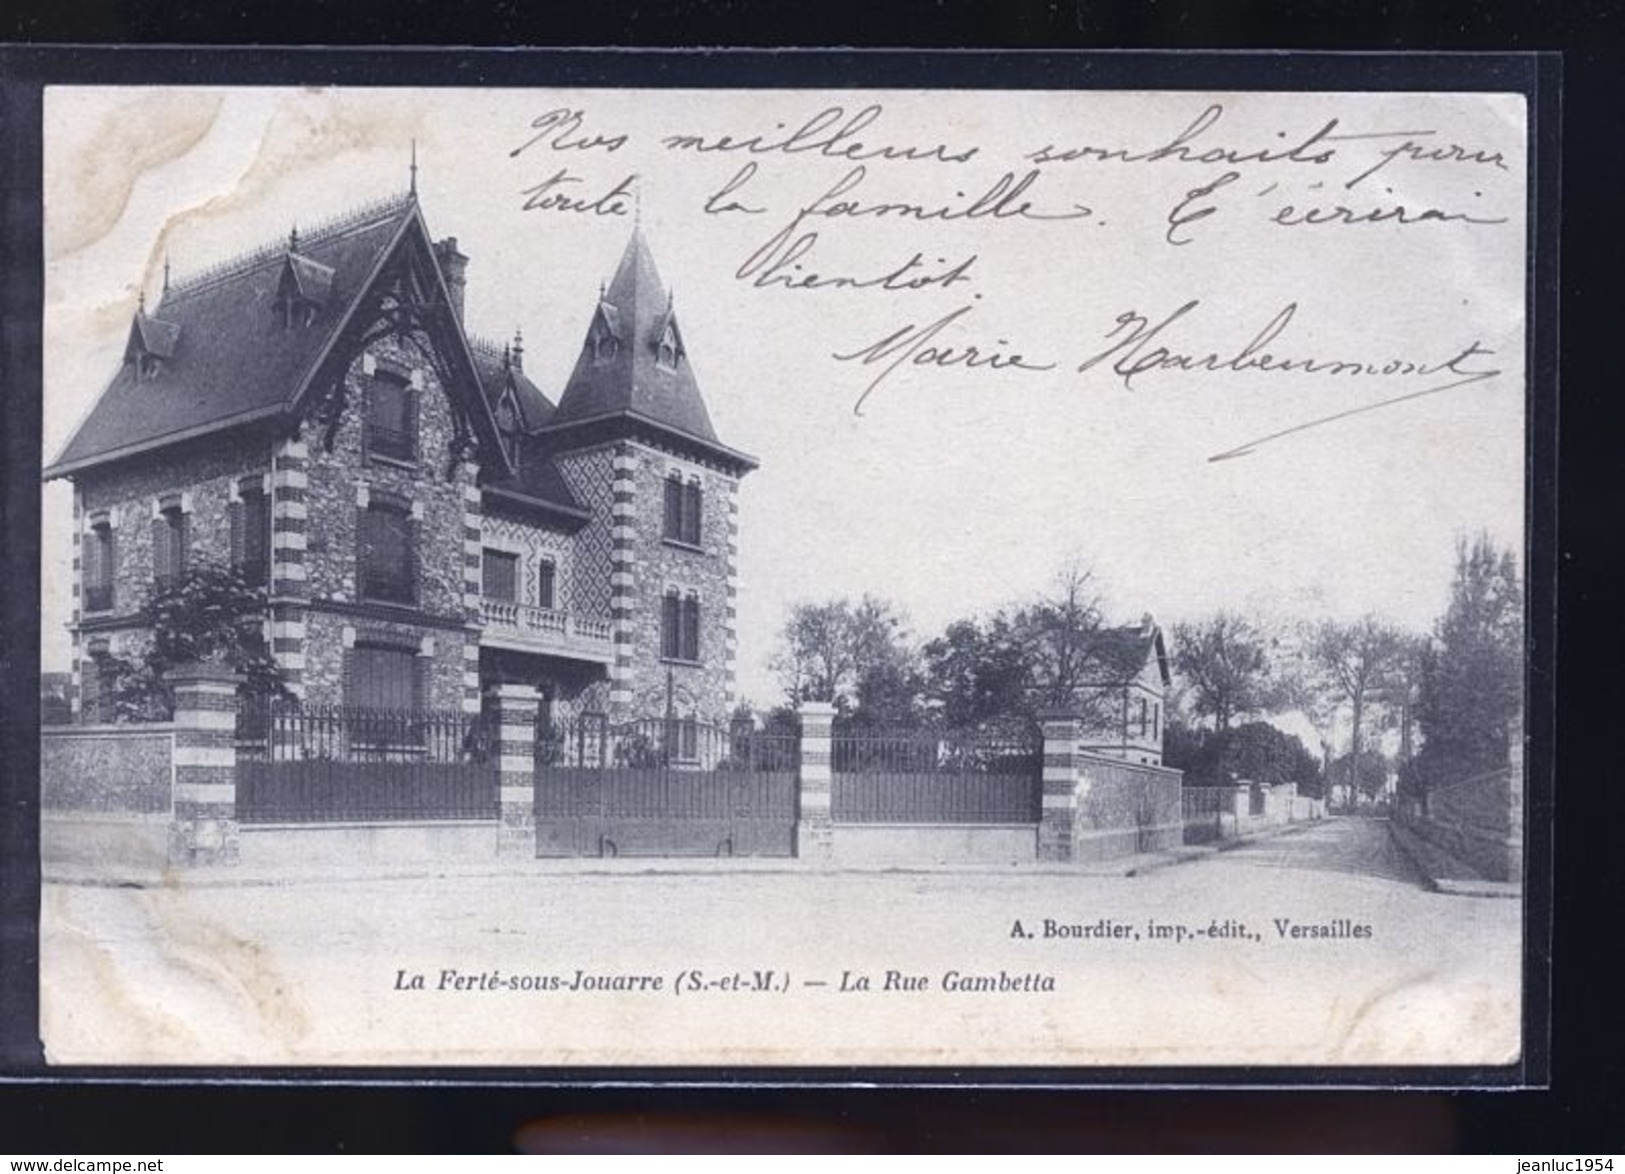 Nos meilleurs souhaits pour
toute la famille. T'écrirai
bientôt.
Marie Harbeumont
A. Bourdier, imp.-édit., Versailles
La Ferté-sous-Jouarre (S.-et-M.) — La Rue Gambetta
www.delcampe.net
jeanluc1954